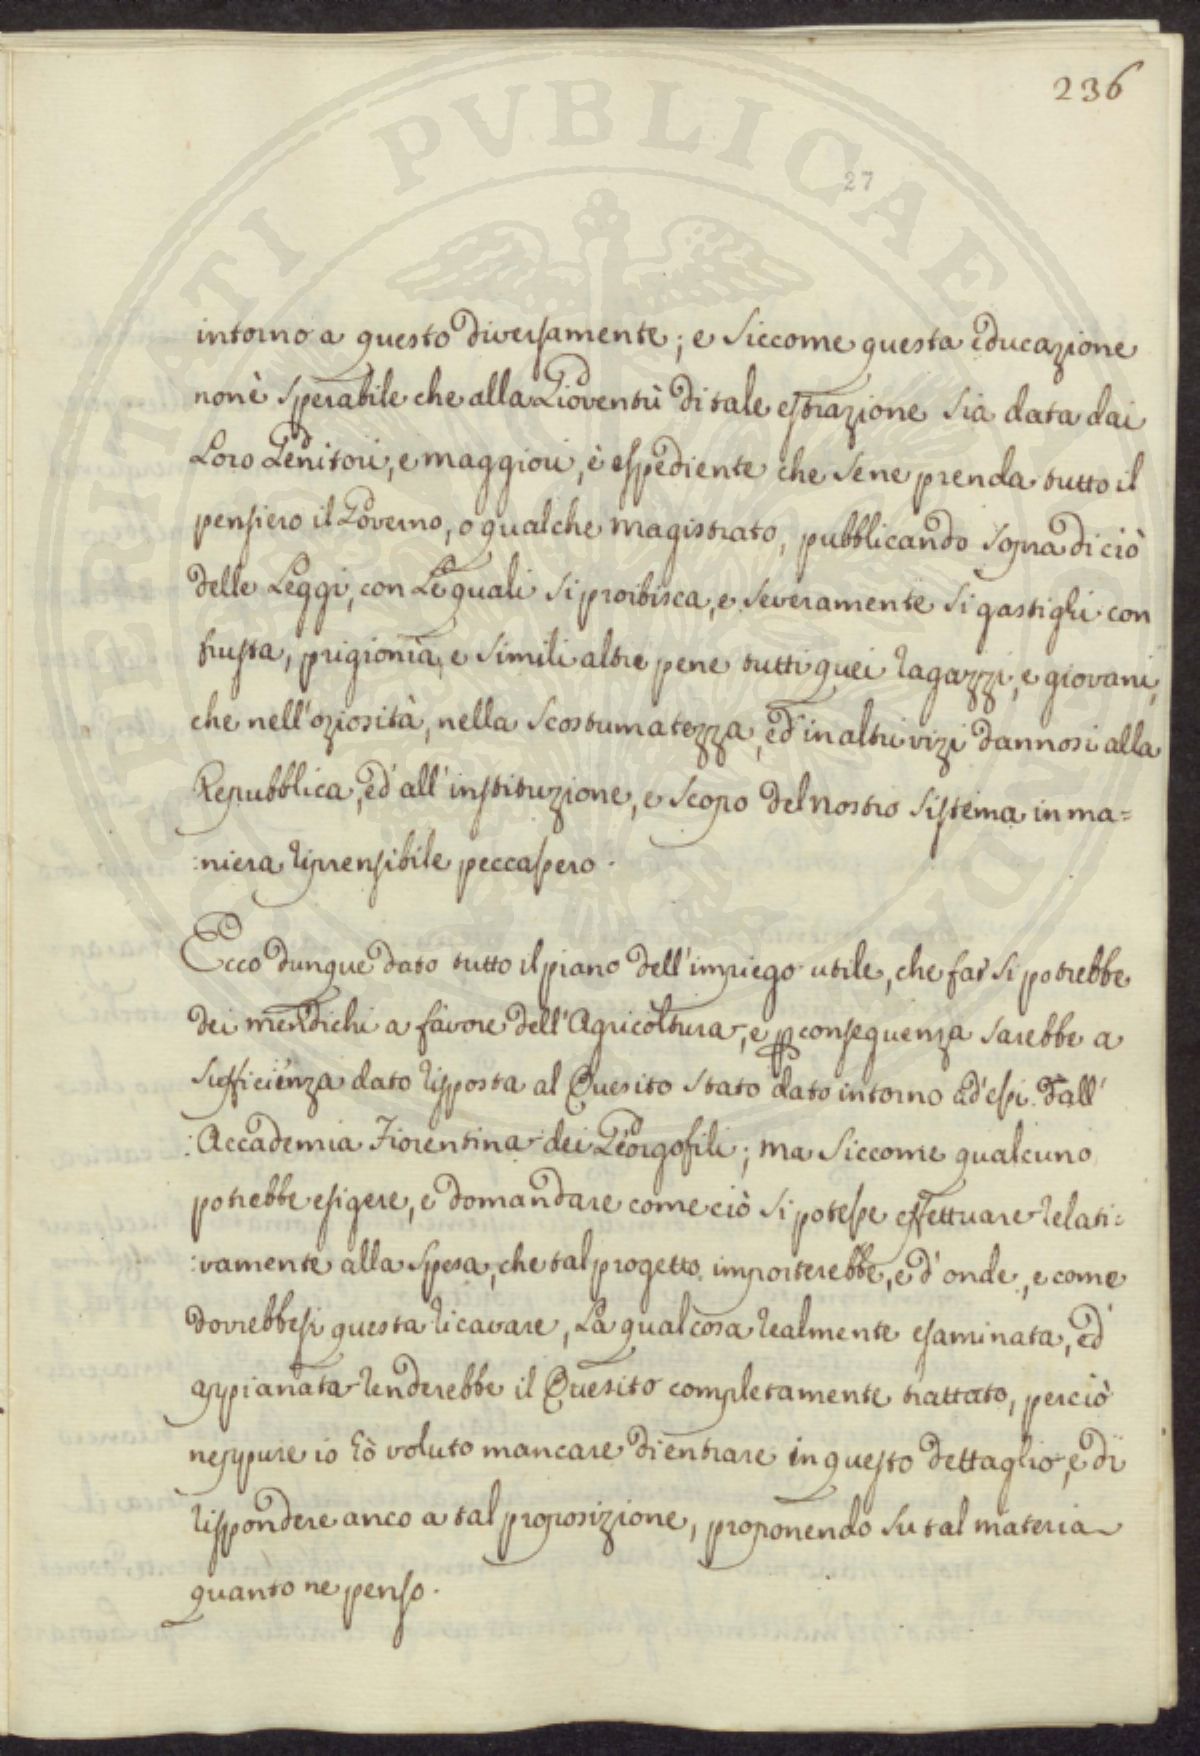 236
27
PROSPERITATI PUBLICAE
intorno a questo diversamente; e siccome questa educazione
non è sperabile che alla Gioventù di tale estrazione sia data dai
Loro Genitori, e maggiori, è espediente che se ne prenda tutto il
pensiero il Governo, o qualche magistrato, pubblicando sopra di ciò
delle Leggi, con Le quali si proibisca, e severamente si gastighi con
frusta, prigionia, e simili altre pene tutti quei ragazzi, e giovani,
che nell'oziosità, nella scostumatezza, ed' in altri vizi dannosi alla
Repubblica, ed' all' instituzione, e scopo del nostro sistema in ma=
:niera riprensibile peccassero.
Ecco dunque dato tutto il piano dell'impiego utile, che far si potrebbe
dei mendichi a favore dell'Agricoltura, e p conseguenza sarebbe a
sufficienza dato risposta al Quesito stato dato intorno ad' essi dall'
:Accademia Fiorentina dei Georgofili; ma siccome qualcuno
potrebbe esigere, e domandare come ciò si potesse effettuare relati=
:vamente alla spesa, che tal progetto importerebbe, e d' onde, e come
dovrebbesi questa ricavare, La qual cosa realmente esaminata, ed'
appianata renderebbe il Quesito completamente trattato, perciò
neppure io hò voluto mancare di entrare in questo dettaglio, e di
rispondere anco a tal proposizione, proponendo su tal materia
quanto ne penso.